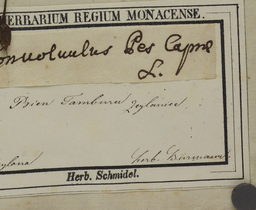 HERBARIUM REGIUM MONACENSE.
onvolvulus Pes Caprae
L.
Tamburu Zeylanice
eylona Herb. Burmanni
Herb. Schmidel.